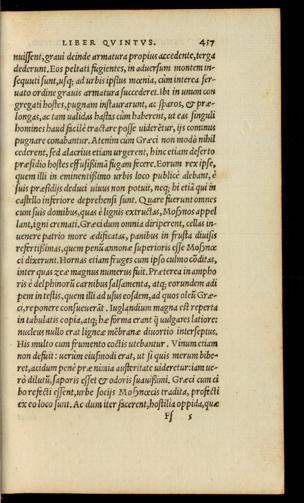 LIBER QVINTVS. 457
nuissent, graui deinde armatura propius accedente, terga
dederunt. Eos peltati fugientes, in aduersum montem in-
sequuti sunt, usq; ad urbis ipsius mœnia, cùm interea ser-
uato ordine grauis armatura succederet. Ibi in unum con
gregati hostes, pugnam instaurarunt, ac sparos, & præ-
longas, ac tam ualidas hastas cùm haberent, ut eas singuli
homines haud facilè tractare posse uiderẽtur, ijs comminus
pugnare conabantur. At enim cùm Græci non modò nihil
cederent, sed alacrius etiam urgerent, hinc etiam deserto
præsidio hostes effusissimã fugam fecere. Eorum rex ipse,
quem illi in eminentissimo urbis loco publicè alebant, è
suis præsidijs deduci uiuus non potuit, neq; hi etiã qui in
castello inferiore deprehensi sunt. Quare fuerunt omnes
cum suis domibus, quas è lignis extructas, Mosynos appel
lant, igni cremati. Græci dum omnia diriperent, cellas in-
uenere patrio more ædificatas, panibus in frusta diuisis
refertissimas, quem penũ annonæ superioris esse Mosynœ
ci dixerunt. Hornas etiam fruges cum ipso culmo cõditas,
inter quas zeæ magnus numerus fuit. Præterea in ampho
ris è delphinorũ carnibus salsamenta, atq; eorundem adi
pem in testis, quem illi ad usus eosdem, ad quos oleũ Græ-
ci, reponere consueuerãt. Iuglandium magna est reperta
in tabulatis copia, atq; hæ forma erant q̃ uulgares latiore:
nucleus nullo erat ligneæ mẽbranæ diuortio interseptus.
His multo cum frumento coctis utebantur. Vinum etiam
non defuit: uerùm eiusmodi erat, ut si quis merum bibe-
ret, acidum penè præ nimia austeritate uideretur: iam ue-
rò dilutũ, saporis esset & odoris suauissimi. Græci cum ci
bo refecti essent, urbe socijs Mosynœcis tradita, profecti
ex eo loco sunt. Ac dum iter facerent, hostilia oppida, quæ
Ff 5